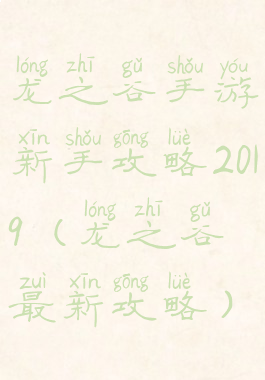 lóng zhī gǔ shǒu yóu
龙之谷手游
xīn shǒu gōng lüè
新手攻略201
lóng zhī gǔ
9（龙之谷
zuì xīn gōng lüè
最新攻略）